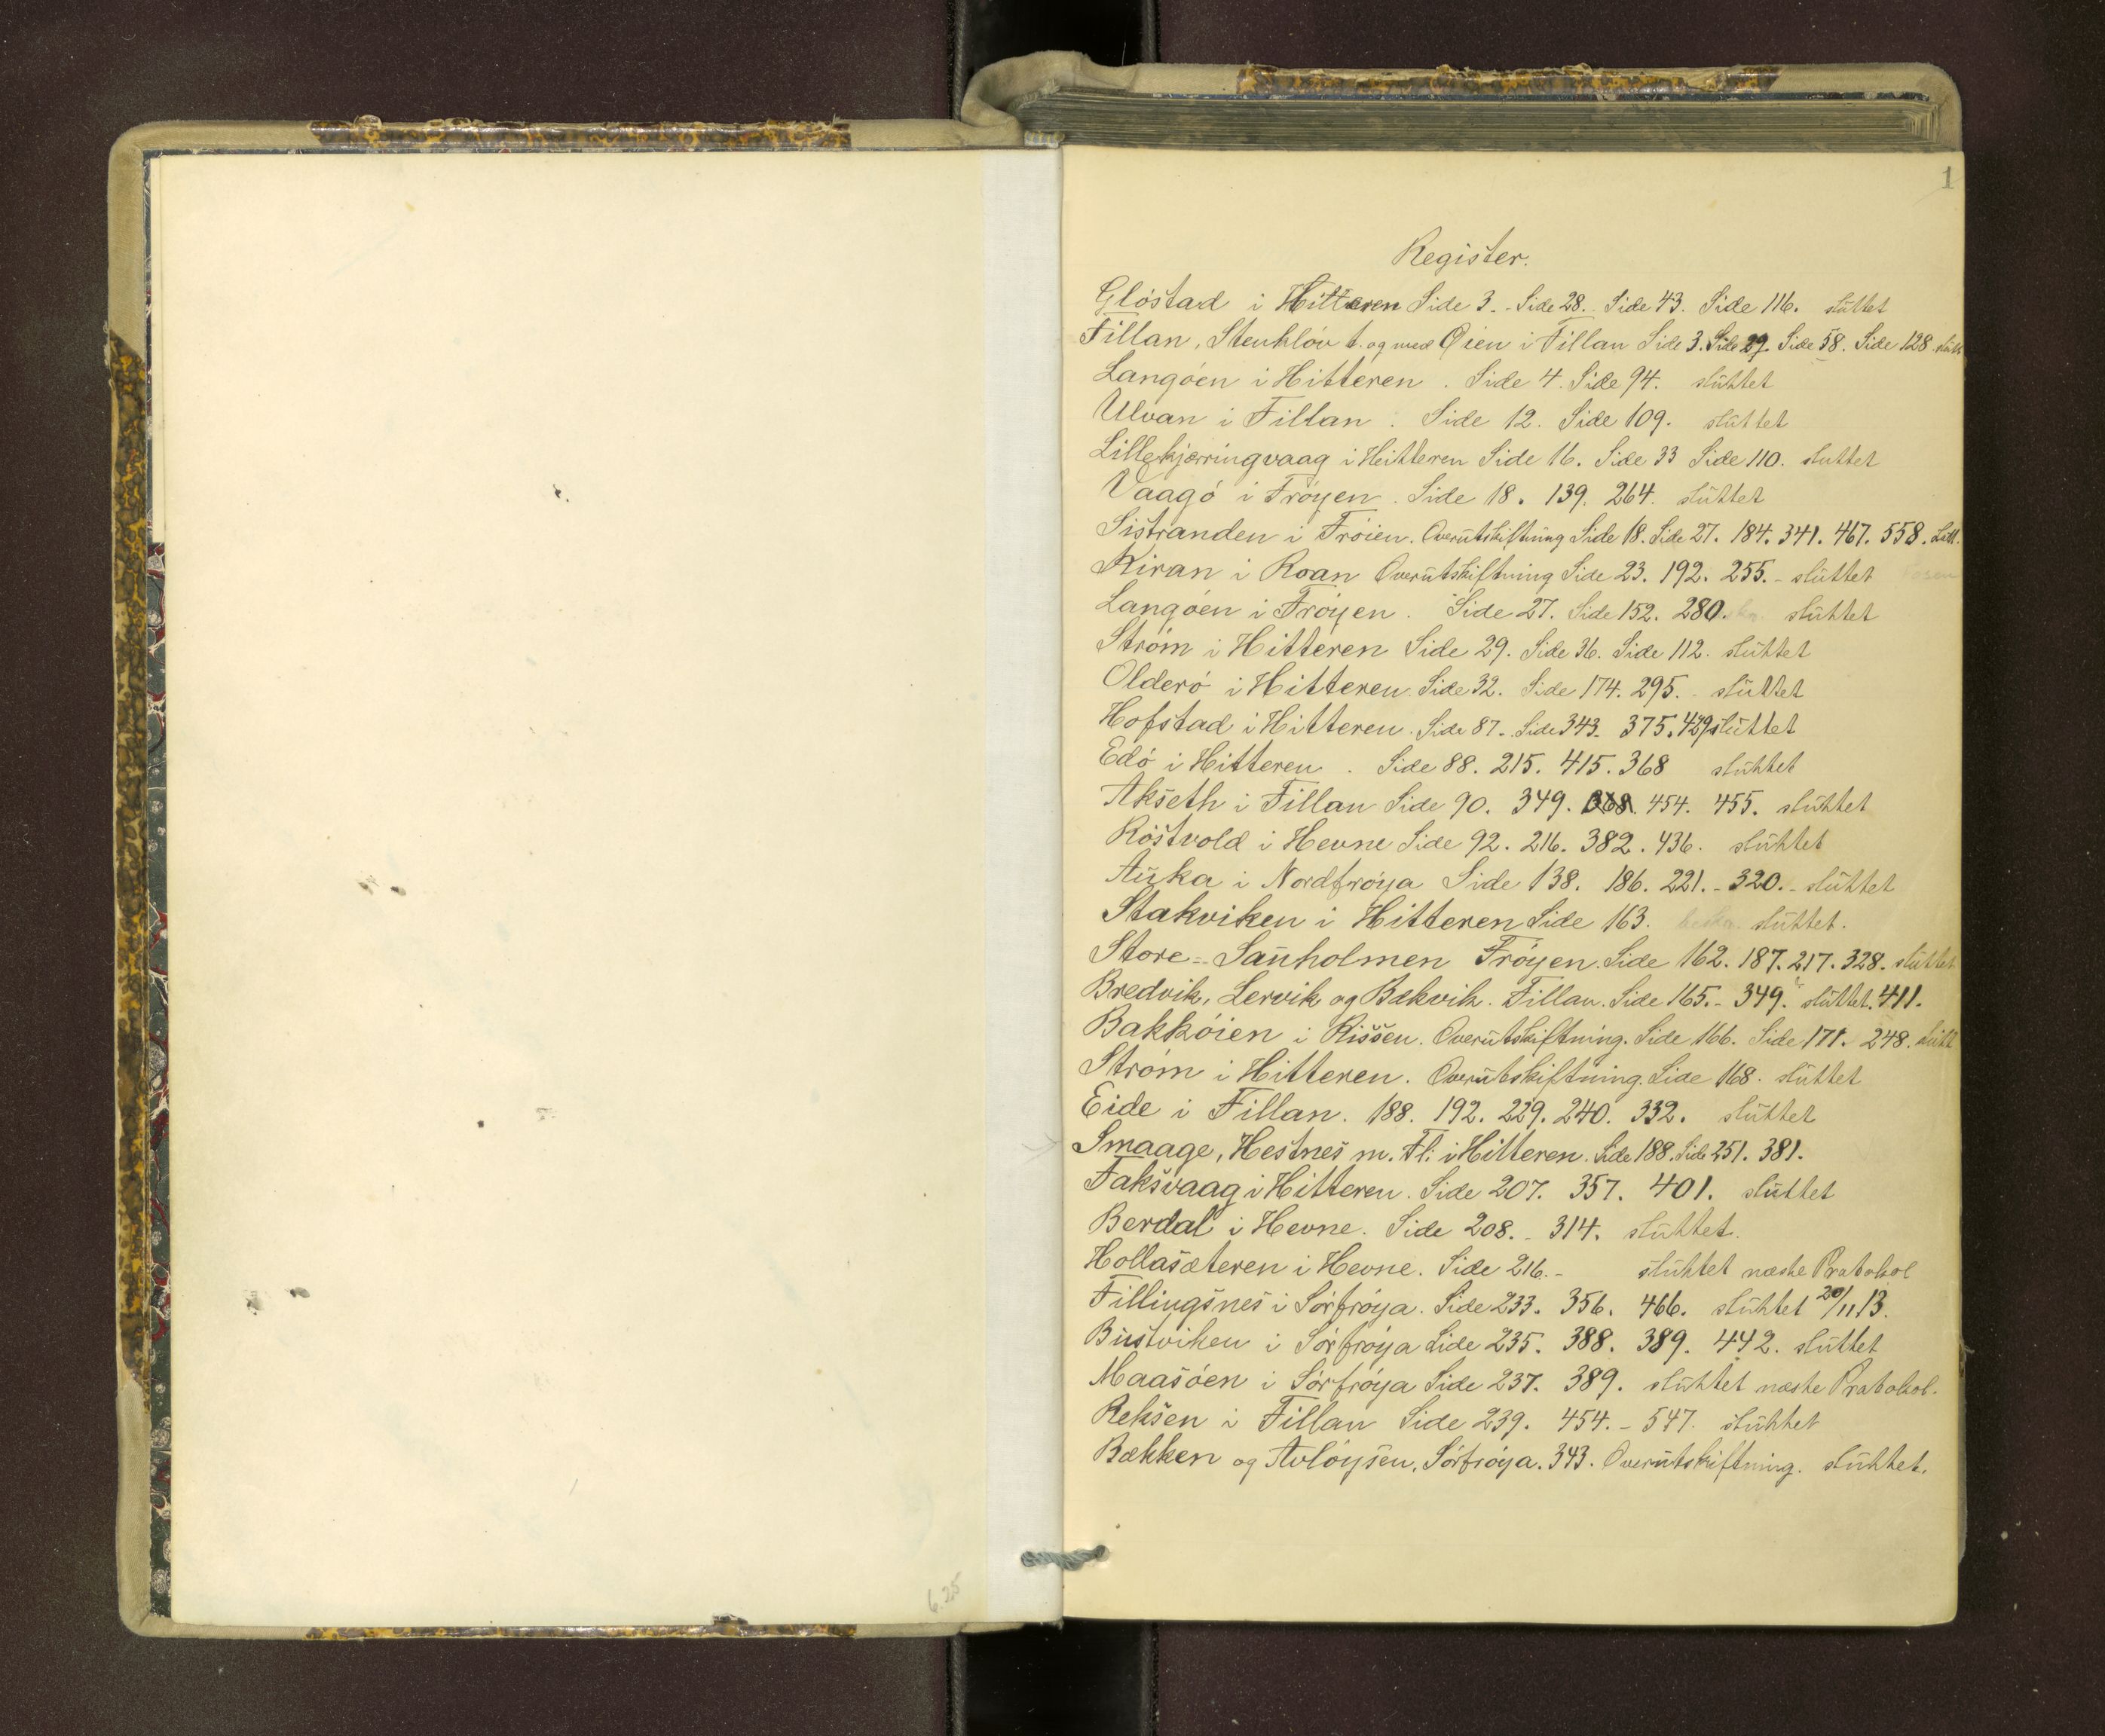 1
Register.
Gløstad i Hitteren Side 3. - Side 28. Side 43. Side 116. sluttet
Fillan, Stenkløv t. og med Øien i Fillan Side 3. Side 29. Side 58. Side 128. slutt
Langøen i Hitteren. Side 4. Side 94. sluttet
Ulvan i Fillan. Side 12. Side 109. sluttet
Lillekjerringvaag i Heitteren Side 16. Side 33 Side 110. sluttet
Vaagø i Frøyen. Side 18. 139. 264. sluttet
Sistranden i Frøien. Overutskiftning Side 18. Side 27. 184. 341. 467. 558.
Kiran i Roan Overutskiftning Side 23. 192. 255. - sluttet
Langøen i Frøyen. Side 27. Side 152. 280. sluttet
Strøm i Hitteren Side 29. Side 36. Side 112. sluttet
Olderø i Hitteren. Side 32. Side 174. 295. - sluttet
Hofstad i Hitteren. Side 87. - Side 343. 375. 429 sluttet
Edø i Hitteren. Side 88. 215. 415. 368 sluttet
Akseth i Fillan Side 90. 349. 368. 454. 455. sluttet
Røstvold i Hevne Side 92. 216. 382. 436. sluttet
Auka i Nordfrøya Side 138. 186. 221. - 320. - sluttet
Stakviken i Hitteren Side 163. sluttet.
Store-Sauholmen Frøyen. Side 162. 187. 217. 328. sluttet
Bredvik, Lervik og Bækvik. Fillan. Side 165. - 349. sluttet. 411.
Bakkøien i Rissen. Overutskiftning. Side 166. Side 171. 248. slutt
Strøm i Hitteren. Overutskiftning. Side 168. sluttet
Eide i Fillan. 188. 192. 229. 240. 332. sluttet
Smaage, Hestnes m. Fl: i Hitteren. Side 188. Side 251. 381.
Faksvaag i Hitteren. Side 207. 357. 401. sluttet
Berdal i Hevne. Side 208. - 314. sluttet.
Hollasæteren i Hevne. Side 216. - sluttet næste Protokol
Fillingsnes i Sørfrøya. Side 233. 356. 466. sluttet 20/11 13.
Bustviken i Sørfrøya Side 235. 388. 389. 442. sluttet
Maasøen i Sørfrøya Side 237. 389. sluttet næste Protokol.
Reksen i Fillan Side 239. 454. - 547. sluttet
Bækken og Avløysen, Sørfrøya. 343. Overutskiftning. sluttet.
6.25